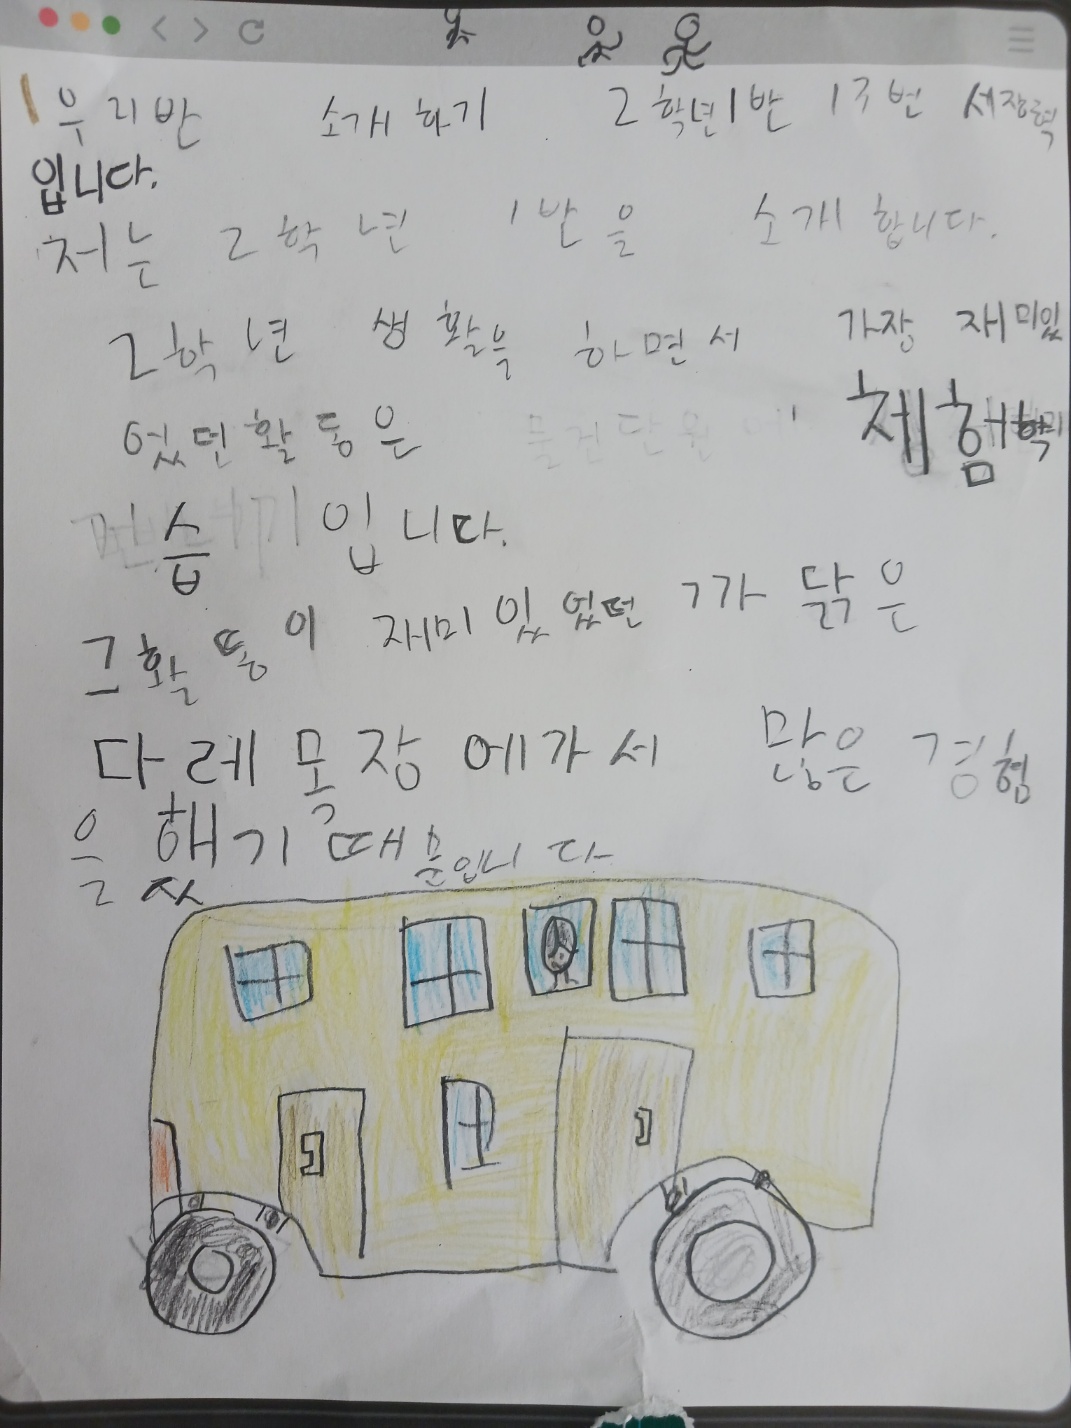 우리반 소개하기 2학년1반 13번 서장혁
입니다.
저는 2학년 1반을 소개합니다.
2학년 생활을 하면서 가장 재미있
었던활동은 체험학
습입니다.
그활동이 재미있었던 닭은
다레목장에가서 많은경험
을했기때문입니다